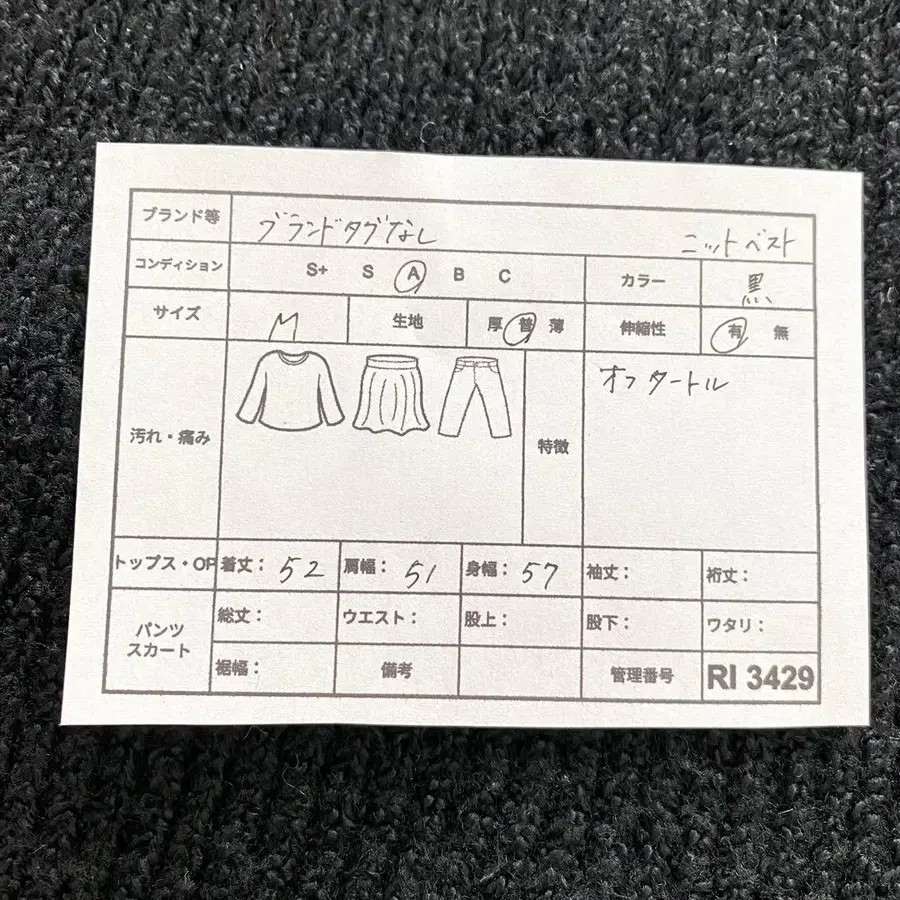 ブランド等 ブランドタグなし ニットベスト
コンディション S+ S A B C カラー 黒
サイズ M 生地 厚 普 薄 伸縮性 有 無
汚れ・痛み 特徴 オフタートル
トップス・OP 着丈： 52 肩幅： 51 身幅： 57 袖丈： 裄丈：
パンツ スカート 総丈： ウエスト： 股上： 股下： ワタリ：
裾幅： 備考 管理番号 RI 3429